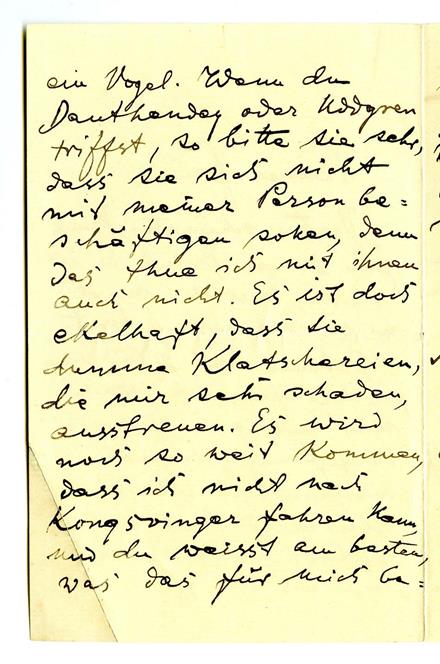 ein Vogel. Wenn du
Dauthendey oder Uddgren
triffst, so bitte sie sehr,
dass sie sich nicht
mit meiner Person be=
schäftigen sollen, denn
das thue ich mit ihnen
auch nicht. Es ist doch
ekelhaft, dass sie
dumme Klatschereien,
die mir sehr schaden,
ausstreuen. Es wird
noch so weit kommen,
dass ich nicht nach
Kongsvinger fahren kann,
und du weisst am besten,
was das für mich be=